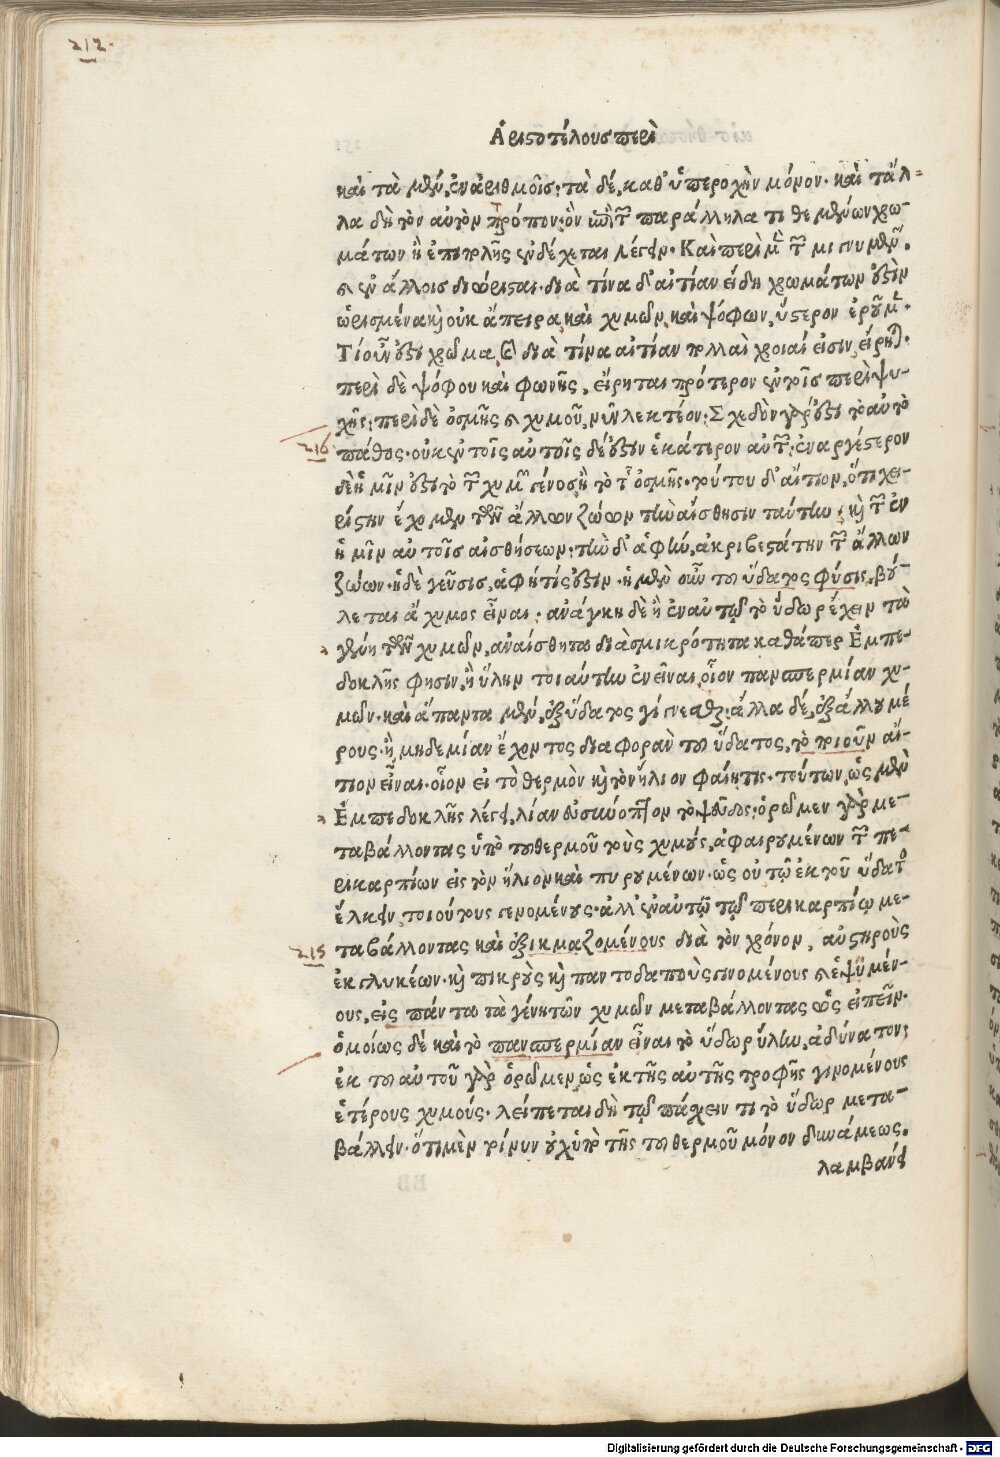 212.
Ἀριστοτέλους περὶ
καὶ τὰ μὲν, ἐν ἀριθμοῖς: τὰ δέ, καθ' ὑπεροχὴν μόνον. καὶ τἄλ-
λα δὴ τὸν αὐτὸν τρόπον· ὃν ἐπὶ τῶν παράλληλα τιθεμένων χρω-
μάτων ἢ ἐπιπολῆς ἐνδέχεται λέγειν. Καὶ περὶ μὲν τῶν μιγνυμένων.
ἐν ἄλλοις διώρισται. διὰ τίνα δ' αἰτίαν εἴδη χρωμάτων ἐστὶν
ὡρισμένα καὶ οὐκ ἄπειρα, καὶ χυμῶν, καὶ ψόφων, ὕστερον ἐροῦμεν.
Τί οὖν ἐστι χρῶμα, καὶ διὰ τίνα αἰτίαν πολλαὶ χροιαί εἰσιν, εἴρηται.
περὶ δὲ ψόφου καὶ φωνῆς, εἴρηται πρότερον ἐν τοῖς περὶ ψυ-
χῆς: περὶ δὲ ὀσμῆς καὶ χυμοῦ, νῦν λεκτέον: Σχεδὸν γάρ ἐστι τὸ αὐτὸ
216 πάθος. οὐκ ἐν τοῖς αὐτοῖς δέ ἐστιν ἑκάτερον αὐτῶν: ἐναργέστερον
δὲ ἡμῖν ἐστι τὸ τῶν χυμῶν γένος ἢ τὸ τῆς ὀσμῆς. τούτου δ' αἴτιον, ὅτι χει-
ρίστην ἔχομεν τῶν ἄλλων ζώων τὴν αἴσθησιν ταύτην, καὶ τῶν ἐν
ἡμῖν αὐτοῖς αἰσθήσεων: τὴν δ' ἁφὴν, ἀκριβεστάτην τῶν ἄλλων
ζώων. ἡ δὲ γεῦσις, ἁφή τίς ἐστιν. ἡ μὲν οὖν τοῦ ὕδατος φύσις, βού-
λεται ἄχυμος εἶναι: ἀνάγκη δὲ ἢ ἐν αὐτῷ τὸ ὕδωρ ἔχειν τὰ
γένη τῶν χυμῶν, ἀναίσθητα διὰ σμικρότητα καθάπερ Ἐμπε-
δοκλῆς φησιν, ἢ ὕλην τοιαύτην ἐνεῖναι, οἷον πανσπερμίαν χυ-
μῶν. καὶ ἅπαντα μὲν, ἐξ ὕδατος γίνεσθαι: ἄλλα δέ, ἐξ ἄλλου μέ
ρους: ἢ μηδεμίαν ἔχοντος διαφορὰν τοῦ ὕδατος, τὸ ποιοῦν αἴ-
τιον εἶναι. οἷον εἰ τὸ θερμὸν καὶ τὸν ἥλιον φαίη τις. τούτων, ὡς μὲν
Ἐμπεδοκλῆς λέγει, λίαν εὐσύνοπτον τὸ ψεῦδος: ὁρῶμεν γὰρ με-
ταβάλλοντας ὑπὸ τοῦ θερμοῦ τοὺς χυμούς, ἀφαιρουμένων τῶν πε-
ρικαρπίων εἰς τὸν ἥλιον καὶ πυρουμένων. ὡς οὐ τῷ ἐκ τοῦ ὕδατος
ἕλκειν, τοιούτους γενομένους. ἀλλ' ἐν αὐτῷ τῷ περικαρπίῳ με-
215 ταβάλλοντας καὶ ἐξικμαζομένους διὰ τὸν χρόνον, αὐστηροὺς
ἐκ γλυκέων. καὶ πικροὺς καὶ παντοδαποὺς γινομένους καὶ ἑψημέν-
ους, εἰς πάντα τὰ γένη τῶν χυμῶν μεταβάλλοντας ὡς εἰπεῖν.
ὁμοίως δὲ καὶ τὸ πανσπερμίαν εἶναι τὸ ὕδωρ ὕλην, ἀδύνατον:
ἐκ τοῦ αὐτοῦ γὰρ ὁρῶμεν, ὡς ἐκ τῆς αὐτῆς τροφῆς γινομένους
ἑτέρους χυμούς. λείπεται δὴ τῷ πάσχειν τι τὸ ὕδωρ μετα-
βάλλειν. ὅτι μὲν τοίνυν οὐχ ὑπὸ τῆς τοῦ θερμοῦ μόνον δυνάμεως.
λαμβάνει
Digitalisierung gefördert durch die Deutsche Forschungsgemeinschaft - DFG